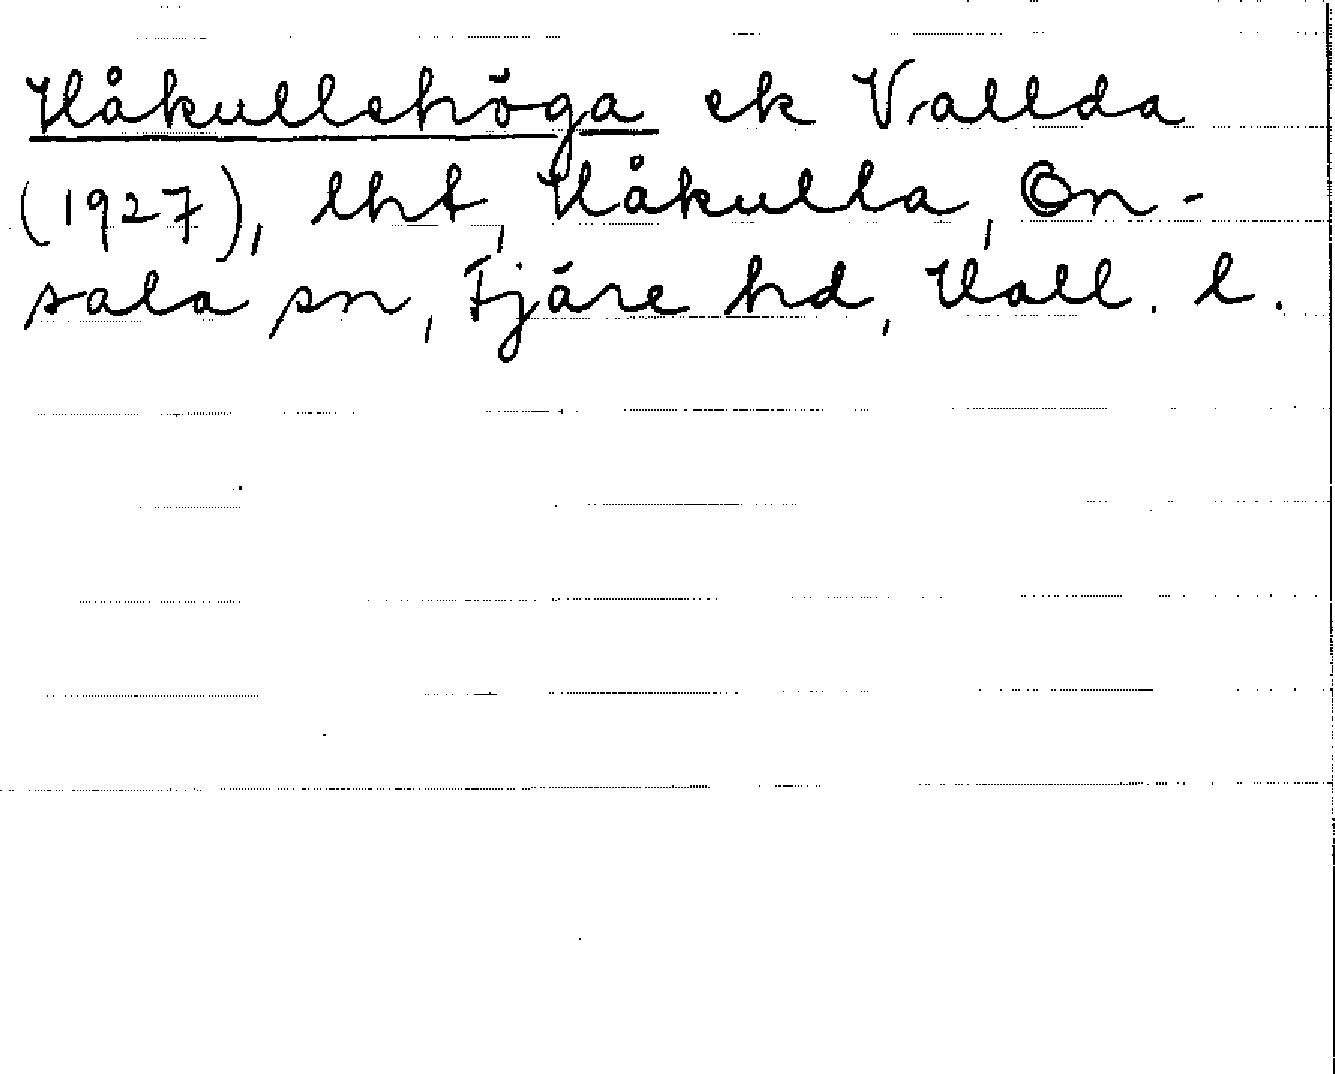 Håkullehöga ek Vallda
(1927), lht, Håkulla, On-
sala sn, Fjäre hd, Hall. l.